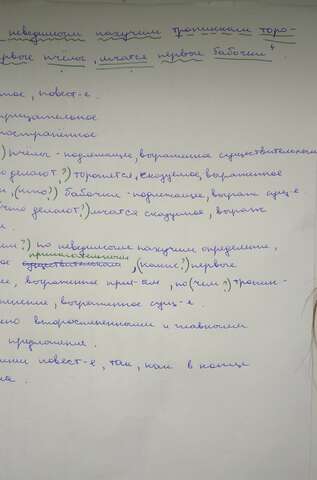 невидимым пахучим тропинкам торо-
рвые пчёлы, мчатся первые бабочки⁴.
ное, повест-е.
рицательное
пространенное
) пчёлы - подлежащее, выраженное существительным
о делают?) торопятся, сказуемое, выраженное
м, (кто?) бабочки - подлежащее, выраж сущ-е
(что делают?) мчатся сказуемое, выраж
им?) по невидимым пахучим определение,
прилагательным
ое существительным, (какие?) первые
ие, выражение при-ем, по (чем?) тропин-
выраженное сущ-е.
но второстепенными и главными
предложения.
повест-е, так, как в конце